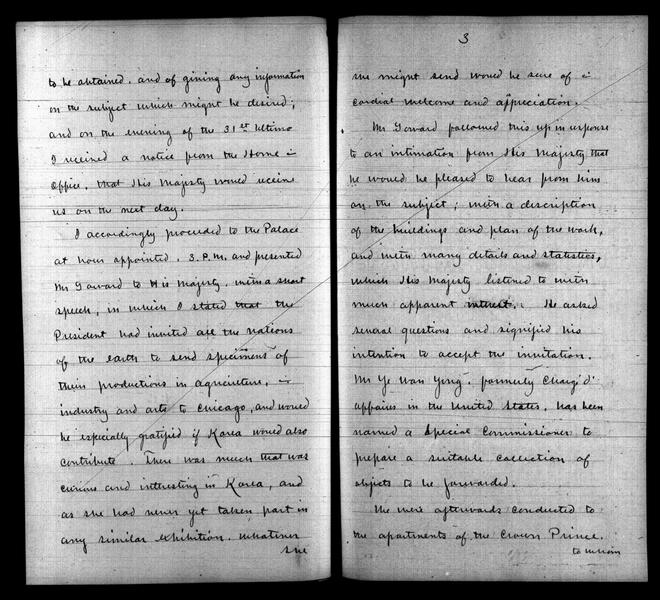 to be obtained, and of giving any information
on the subject which might be desired;
and on the evening of the 31st Ultimo
I received a notice from the Home
Office, that His Majesty would receive
us on the next day.
I accordingly proceeded to the Palace
at hour appointed, 3. P.M. and presented
Mr Goward to His Majesty, with a short
speech, in which I stated that the
President had invited all the nations
of the earth to send specimens of
their productions in agriculture,
industry and arts to Chicago, and would
be especially gratified if Korea would also
contribute. There was much that was
curious and interesting in Korea, and
as she had never yet taken part in
any similar exhibition, whatever
she
3
she might send would be sure of a
cordial welcome and appreciation.
Mr Goward followed this up in response
to an intimation from His Majesty that
he would be pleased to hear from him
on the subject; with a description
of the buildings and plan of the work,
and with many details and statistics,
which His Majesty listened to with
much apparent interest. He asked
several questions and signified his
intention to accept the invitation.
Mr Ye Wan Yong, formerly Chargé d'
affaires in the United States, has been
named a Special Commissioner to
prepare a suitable collection of
objects to be forwarded.
We were afterwards conducted to
the apartments of the Crown Prince.
to whom